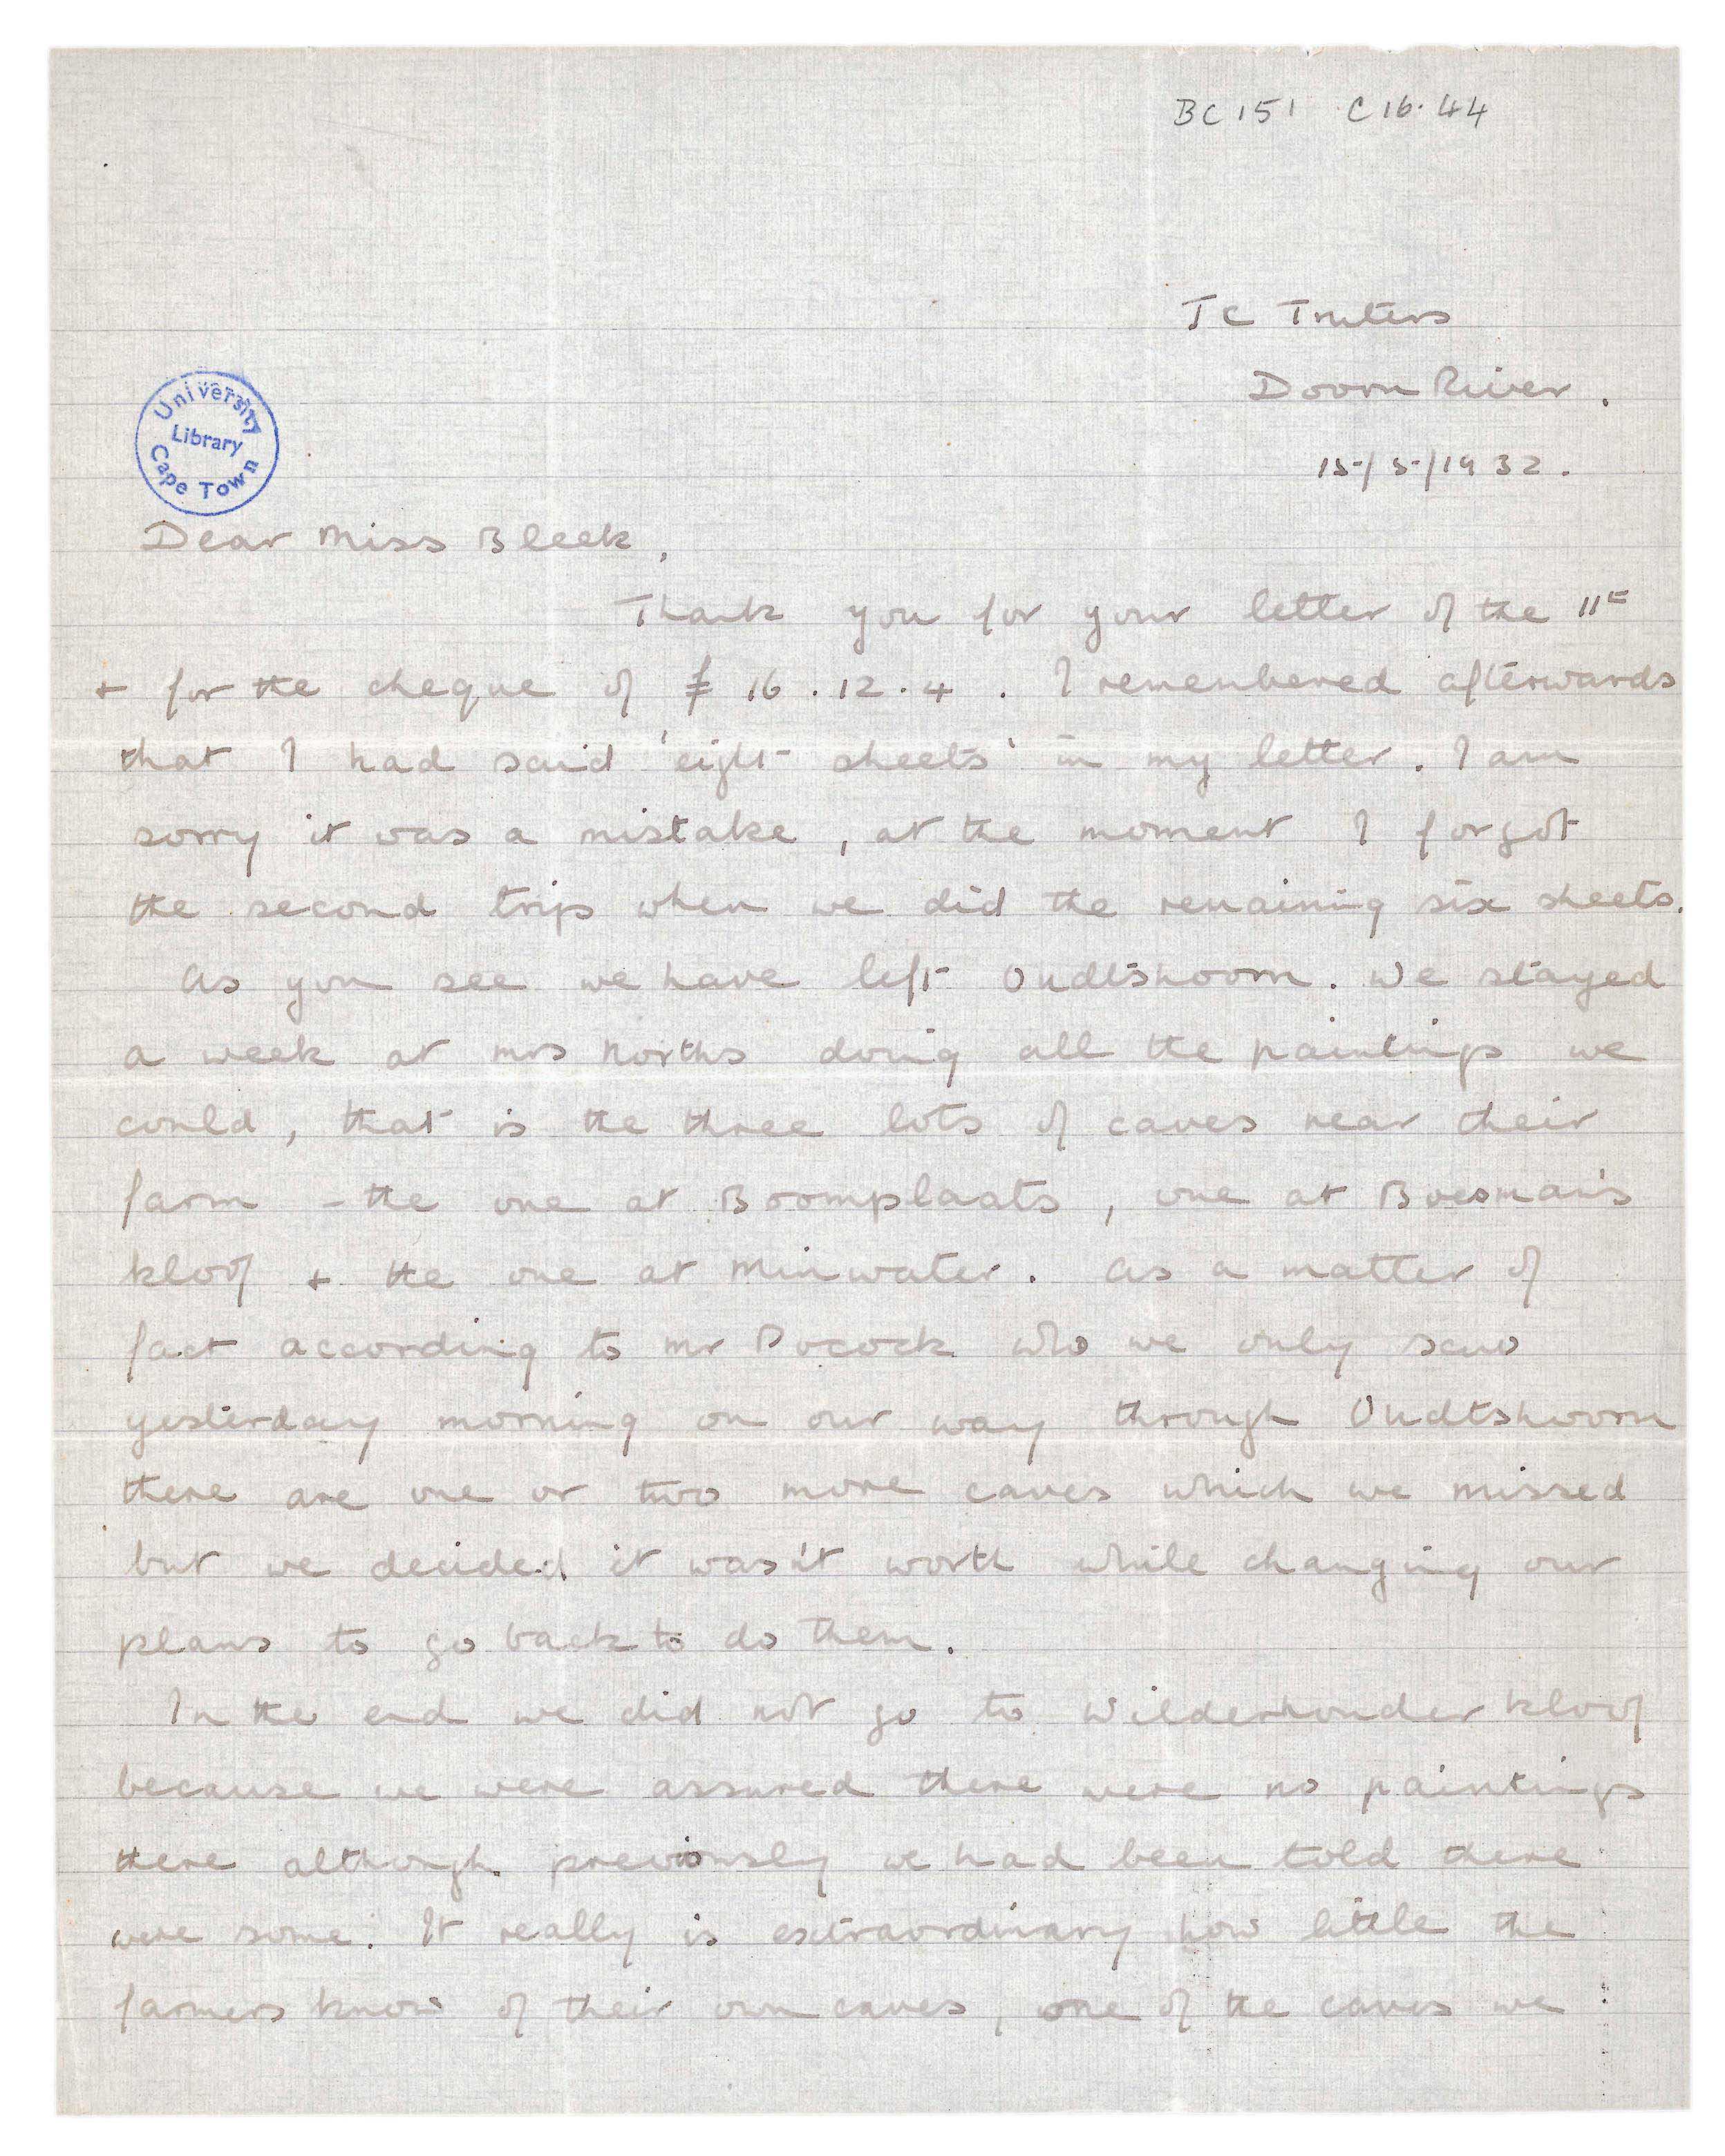 BC 151 C16.44
J C Truters
Doorn River.
15/5/1932.
University
Library
Cape Town
Dear Miss Bleek,
Thank you for your letter of the 11th
+ for the cheque of £ 16.12.4. I remembered afterwards
that I had said 'eight sheets' in my letter. I am
sorry it was a mistake, at the moment I forgot
the second trip when we did the remaining six sheets.
As you see we have left Oudtshoorn. We stayed
a week at Mrs Norths doing all the paintings we
could, that is the three lots of caves near their
farm - the one at Boomplaats, one at Boesman's
kloof + the one at Minwater. As a matter of
fact according to Mr Pocock who we only saw
yesterday morning on our way through Oudtshoorn
there are one or two more caves which we missed
but we decided it wasn't worth while changing our
plans to go back to do them.
In the end we did not go to Wilderhonder kloof
because we were assured there were no paintings
there although previously we had been told there
were some. It really is extraordinary how little the
farmers know of their own caves, one of the caves we